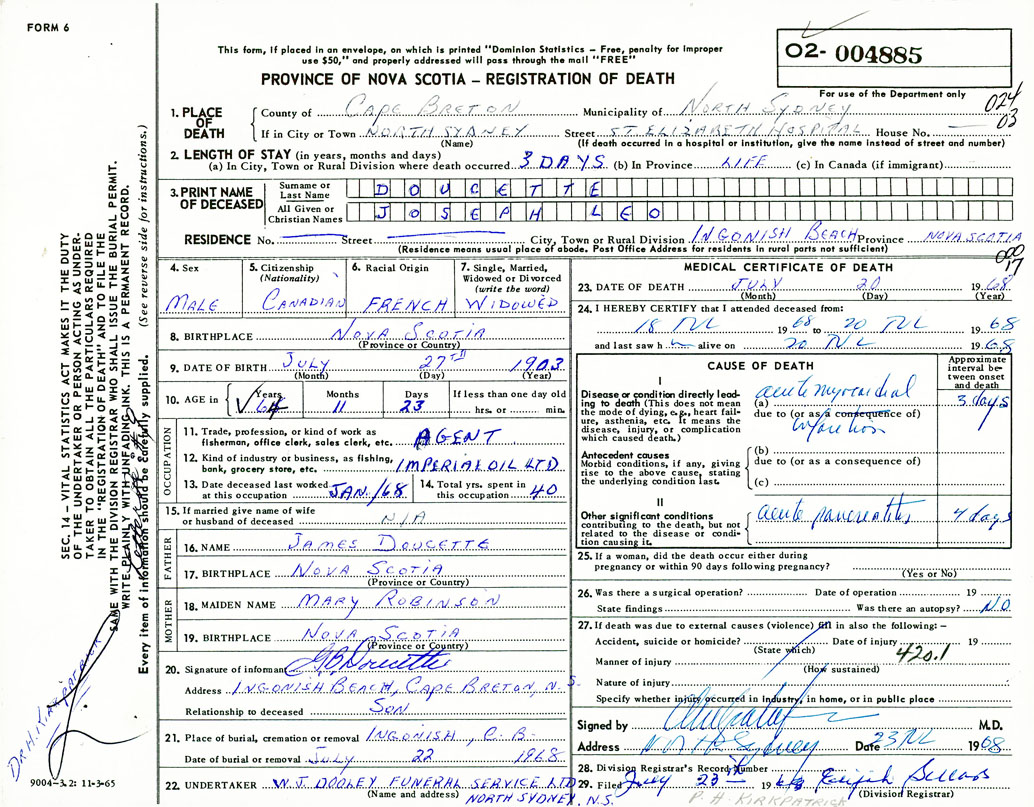 FORM 6
This form, if placed in an envelope, on which is printed "Dominion Statistics – Free, penalty for improper
use $50," and properly addressed will pass through the mail "FREE"
PROVINCE OF NOVA SCOTIA – REGISTRATION OF DEATH
02- 004885
For use of the Department only
024
03
1. PLACE OF DEATH
County of CAPE BRETON Municipality of NORTH SYDNEY
If in City or Town NORTH SYDNEY Street ST. ELIZABETH HOSPITAL House No.
(Name) (If death occurred in a hospital or institution, give the name instead of street and number)
2. LENGTH OF STAY (in years, months and days)
(a) In City, Town or Rural Division where death occurred 3 DAYS (b) In Province LIFE (c) In Canada (if immigrant)
3. PRINT NAME OF DECEASED
Surname or Last Name DOUCETTE
All Given or Christian Names JOSEPH LEO
RESIDENCE No. Street City, Town or Rural Division INGONISH BEACH Province NOVA SCOTIA
(Residence means usual place of abode. Post Office Address for residents in rural parts not sufficient)
000
17
4. Sex MALE
5. Citizenship (Nationality) CANADIAN
6. Racial Origin FRENCH
7. Single, Married, Widowed or Divorced (write the word) WIDOWED
8. BIRTHPLACE NOVA SCOTIA
(Province or Country)
9. DATE OF BIRTH JULY 27TH 1903
(Month) (Day) (Year)
10. AGE in Years 64 Months 11 Days 23 If less than one day old hrs. or min.
OCCUPATION
11. Trade, profession, or kind of work as fisherman, office clerk, sales clerk, etc. AGENT
12. Kind of industry or business, as fishing, bank, grocery store, etc. IMPERIAL OIL LTD
13. Date deceased last worked at this occupation JAN./68
14. Total yrs. spent in this occupation 40
15. If married give name of wife or husband of deceased N/A
FATHER
16. NAME JAMES DOUCETTE
17. BIRTHPLACE NOVA SCOTIA
(Province or Country)
MOTHER
18. MAIDEN NAME MARY ROBINSON
19. BIRTHPLACE NOVA SCOTIA
(Province or Country)
20. Signature of informant Doucette
Address INGONISH BEACH, CAPE BRETON, N.S.
Relationship to deceased SON
21. Place of burial, cremation or removal INGONISH, C.B.
Date of burial or removal July 22 1968
22. UNDERTAKER W.J. DOOLEY FUNERAL SERVICE LTD
(Name and address) NORTH SYDNEY, N.S.
MEDICAL CERTIFICATE OF DEATH
23. DATE OF DEATH JULY 20 1968
(Month) (Day) (Year)
24. I HEREBY CERTIFY that I attended deceased from:
18 1968 to 20 1968
and last saw h alive on 20 1968
CAUSE OF DEATH
Approximate interval between onset and death
I
Disease or condition directly leading to death (This does not mean the mode of dying, e.g., heart failure, asthenia, etc. It means the disease, injury, or complication which caused death.)
(a) acute myocardial 3 days
due to (or as a consequence of)
infarction
Antecedent causes
Morbid conditions, if any, giving rise to the above cause, stating the underlying condition last.
(b)
due to (or as a consequence of)
(c)
II
Other significant conditions contributing to the death, but not related to the disease or condition causing it.
acute pancreatitis 4 days
25. If a woman, did the death occur either during
pregnancy or within 90 days following pregnancy?
(Yes or No)
26. Was there a surgical operation? Date of operation 19
State findings Was there an autopsy? NO
27. If death was due to external causes (violence) fill in also the following:–
Accident, suicide or homicide? Date of injury 19
(State which) 420.1
Manner of injury
(How sustained)
Nature of injury
Specify whether injury occurred in industry, in home, or in public place
Signed by M.D.
Address North Sydney Date 23 1968
28. Division Registrar's Record Number
29. Filed July 23 1968
(Division Registrar)
P. H. KIRKPATRICK
SEC. 14 – VITAL STATISTICS ACT MAKES IT THE DUTY
OF THE UNDERTAKER OR PERSON ACTING AS UNDERTAKER TO OBTAIN ALL THE PARTICULARS REQUIRED
IN THE "REGISTRATION OF DEATH" AND TO FILE THE
SAME WITH THE DIVISION REGISTRAR WHO SHALL ISSUE THE BURIAL PERMIT.
WRITE PLAINLY WITH UNFADING INK. THIS IS A PERMANENT RECORD.
Every item of information should be carefully supplied. (See reverse side for instructions.)
DR H. KIRKPATRICK
9004-3.2: 11-3-65